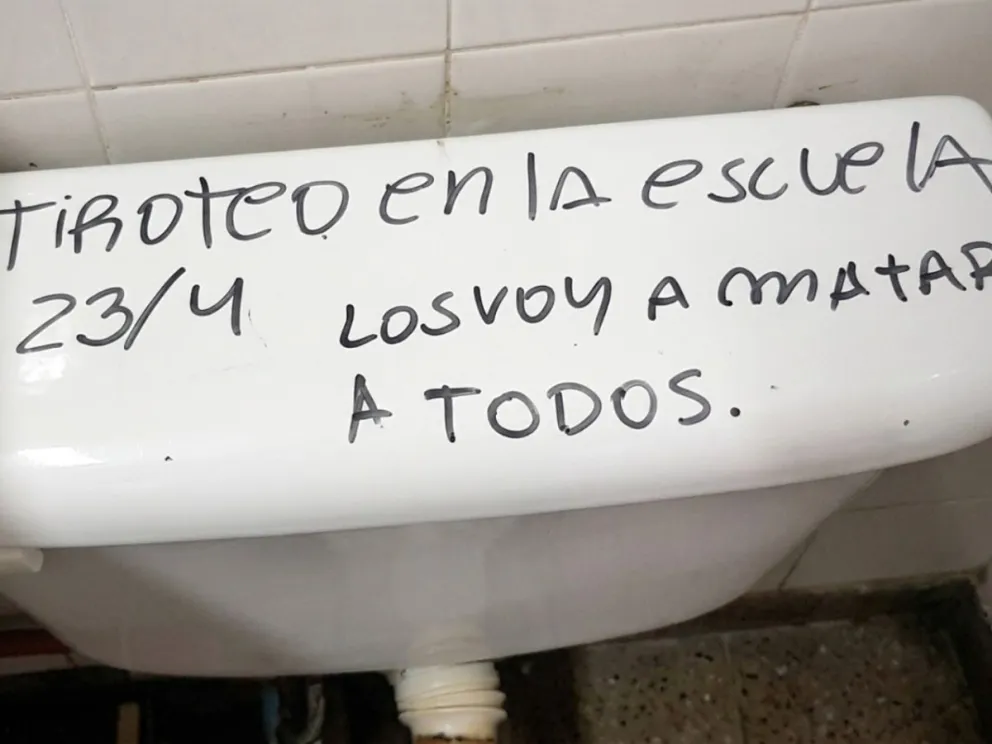 TiROTEO en lA escuelA
23/4 LOS VOY A MATAR
A TODOS.